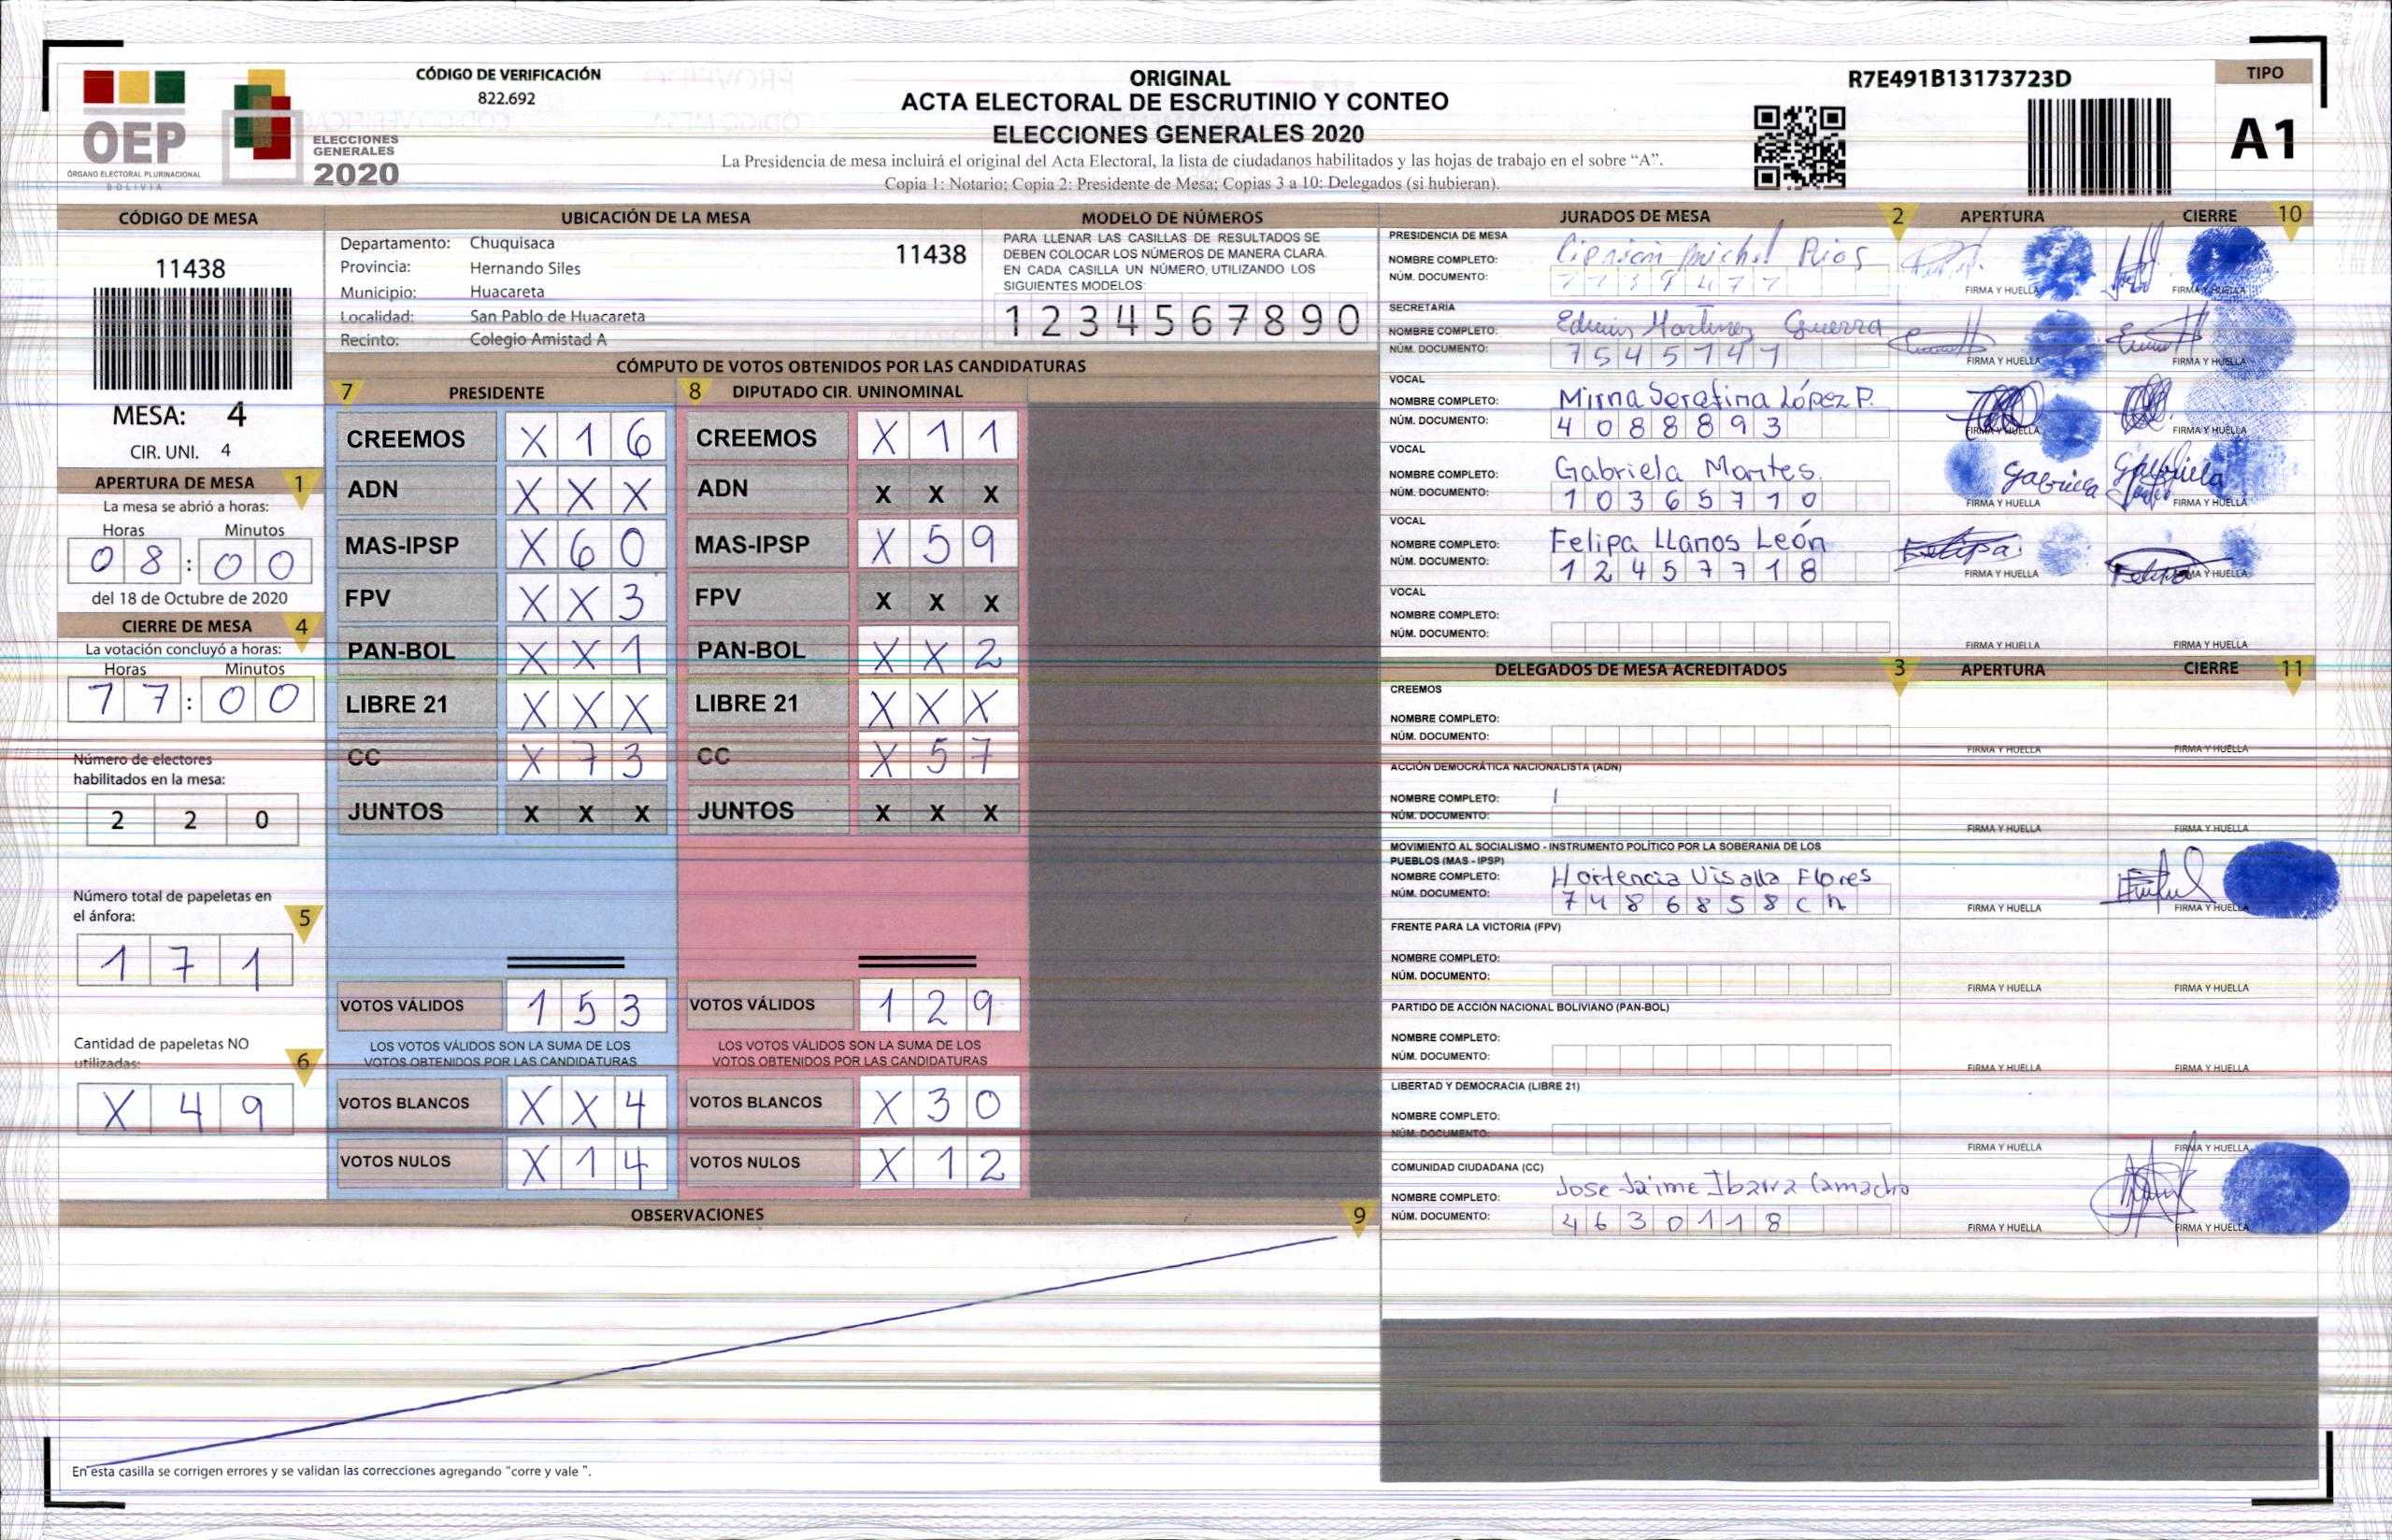 CÓDIGO DE VERIFICACIÓN
822.692
OEP
ÓRGANO ELECTORAL PLURINACIONAL
BOLIVIA
ELECCIONES
GENERALES
2020
ORIGINAL
ACTA ELECTORAL DE ESCRUTINIO Y CONTEO
ELECCIONES GENERALES 2020
La Presidencia de mesa incluirá el original del Acta Electoral, la lista de ciudadanos habilitados y las hojas de trabajo en el sobre “A”.
Copia 1: Notario; Copia 2: Presidente de Mesa; Copias 3 a 10: Delegados (si hubieran).
R7E491B13173723D
TIPO
A1
CÓDIGO DE MESA
11438
MESA: 4
CIR. UNI. 4
UBICACIÓN DE LA MESA
Departamento: Chuquisaca 11438
Provincia: Hernando Siles
Municipio: Huacareta
Localidad: San Pablo de Huacareta
Recinto: Colegio Amistad A
MODELO DE NÚMEROS
PARA LLENAR LAS CASILLAS DE RESULTADOS SE
DEBEN COLOCAR LOS NÚMEROS DE MANERA CLARA.
EN CADA CASILLA UN NÚMERO, UTILIZANDO LOS
SIGUIENTES MODELOS:
1 2 3 4 5 6 7 8 9 0
APERTURA DE MESA 1
La mesa se abrió a horas:
Horas Minutos
0 8 : 0 0
del 18 de Octubre de 2020
CIERRE DE MESA 4
La votación concluyó a horas:
Horas Minutos
1 7 : 0 0
Número de electores
habilitados en la mesa:
2 2 0
Número total de papeletas en
el ánfora: 5
1 7 1
Cantidad de papeletas NO
utilizadas: 6
X 4 9
CÓMPUTO DE VOTOS OBTENIDOS POR LAS CANDIDATURAS
7 PRESIDENTE 8 DIPUTADO CIR. UNINOMINAL
CREEMOS X 1 6 CREEMOS X 1 1
ADN X X X ADN X X X
MAS-IPSP X 6 0 MAS-IPSP X 5 9
FPV X X 3 FPV X X X
PAN-BOL X X 1 PAN-BOL X X 2
LIBRE 21 X X X LIBRE 21 X X X
CC X 7 3 CC X 5 7
JUNTOS X X X JUNTOS X X X
VOTOS VÁLIDOS 1 5 3 VOTOS VÁLIDOS 1 2 9
LOS VOTOS VÁLIDOS SON LA SUMA DE LOS LOS VOTOS VÁLIDOS SON LA SUMA DE LOS
VOTOS OBTENIDOS POR LAS CANDIDATURAS VOTOS OBTENIDOS POR LAS CANDIDATURAS
VOTOS BLANCOS X X 4 VOTOS BLANCOS X 3 0
VOTOS NULOS X 1 4 VOTOS NULOS X 1 2
OBSERVACIONES 9
En esta casilla se corrigen errores y se validan las correcciones agregando “corre y vale ”.
JURADOS DE MESA 2 APERTURA CIERRE 10
PRESIDENCIA DE MESA
NOMBRE COMPLETO: Michel Rios
NÚM. DOCUMENTO:
FIRMA Y HUELLA FIRMA Y HUELLA
SECRETARIA
NOMBRE COMPLETO: Martinez Guerra
NÚM. DOCUMENTO:
FIRMA Y HUELLA FIRMA Y HUELLA
VOCAL
NOMBRE COMPLETO: Mirna Serafina López P.
NÚM. DOCUMENTO: 4 0 8 8 8 9 3
FIRMA Y HUELLA FIRMA Y HUELLA
VOCAL
NOMBRE COMPLETO: Gabriela Montes
NÚM. DOCUMENTO: 1 0 3 6 5 7 1 0
Gabriela Gabriela
FIRMA Y HUELLA FIRMA Y HUELLA
VOCAL
NOMBRE COMPLETO: Felipa Llanos León
NÚM. DOCUMENTO: 1 2 4 5 7 7 1 8
Felipa Felipa
FIRMA Y HUELLA FIRMA Y HUELLA
VOCAL
NOMBRE COMPLETO:
NÚM. DOCUMENTO:
FIRMA Y HUELLA FIRMA Y HUELLA
DELEGADOS DE MESA ACREDITADOS 3 APERTURA CIERRE 11
CREEMOS
NOMBRE COMPLETO:
NÚM. DOCUMENTO:
FIRMA Y HUELLA FIRMA Y HUELLA
ACCIÓN DEMOCRÁTICA NACIONALISTA (ADN)
NOMBRE COMPLETO:
NÚM. DOCUMENTO:
FIRMA Y HUELLA FIRMA Y HUELLA
MOVIMIENTO AL SOCIALISMO - INSTRUMENTO POLÍTICO POR LA SOBERANIA DE LOS
PUEBLOS (MAS - IPSP)
NOMBRE COMPLETO: Hortencia Visalla Flores
NÚM. DOCUMENTO: 7 4 8 6 8 5 8 c h
FIRMA Y HUELLA FIRMA Y HUELLA
FRENTE PARA LA VICTORIA (FPV)
NOMBRE COMPLETO:
NÚM. DOCUMENTO:
FIRMA Y HUELLA FIRMA Y HUELLA
PARTIDO DE ACCIÓN NACIONAL BOLIVIANO (PAN-BOL)
NOMBRE COMPLETO:
NÚM. DOCUMENTO:
FIRMA Y HUELLA FIRMA Y HUELLA
LIBERTAD Y DEMOCRACIA (LIBRE 21)
NOMBRE COMPLETO:
NÚM. DOCUMENTO:
FIRMA Y HUELLA FIRMA Y HUELLA
COMUNIDAD CIUDADANA (CC)
NOMBRE COMPLETO: Jose Jaime Ibarra Camacho
NÚM. DOCUMENTO: 4 6 3 0 1 1 8
FIRMA Y HUELLA FIRMA Y HUELLA